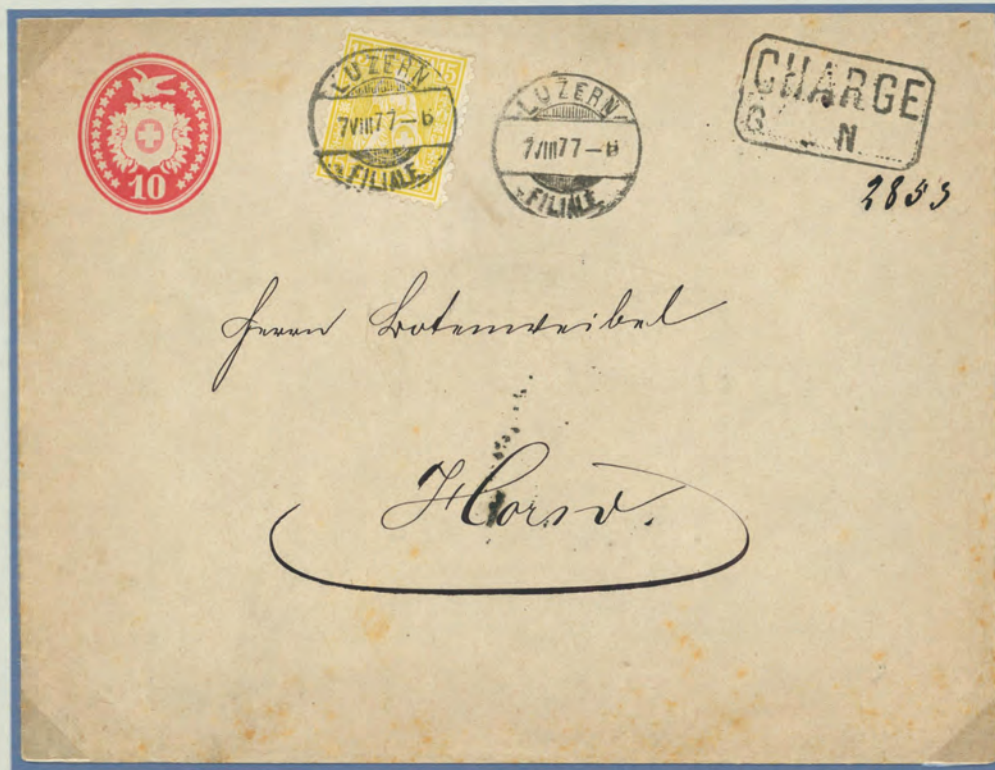 10
15
LUZERN
7VIII77-6
FILIALE
LUZERN
7VIII77-6
FILIALE
CHARGE
G N
2853
Herrn Botenweibel
Horw.